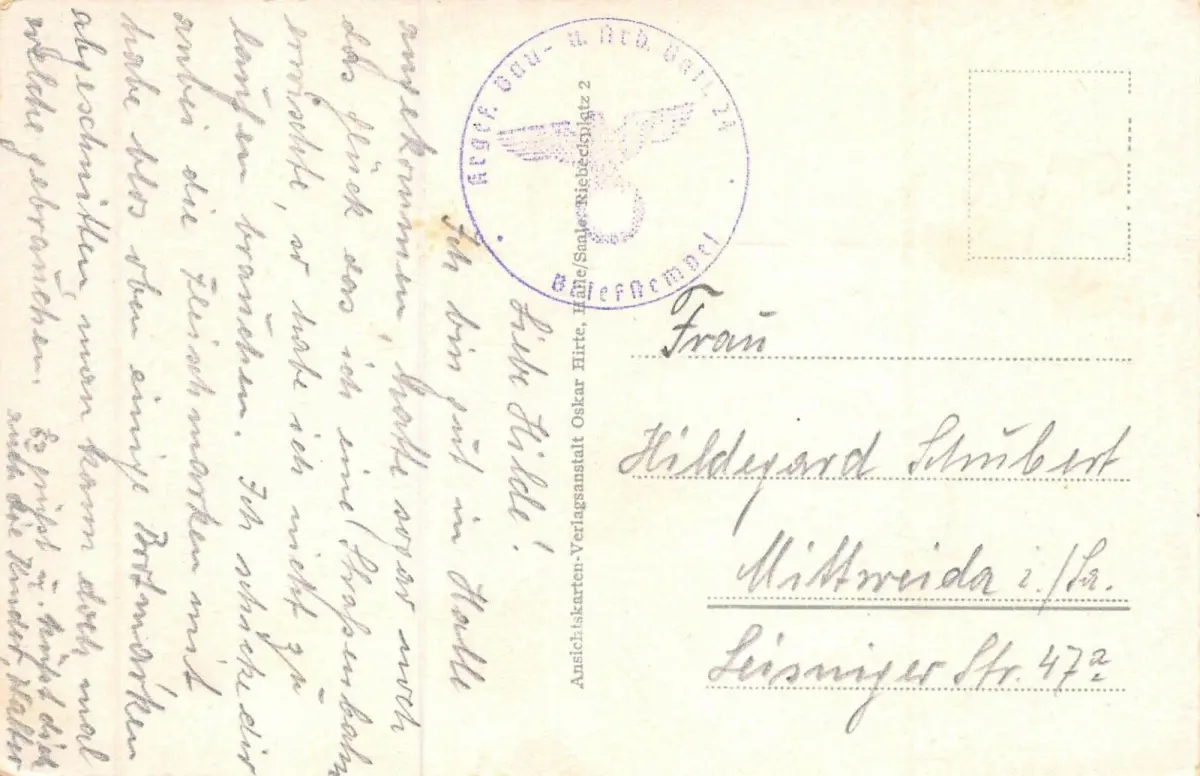 Liebe Hilde!
Ich bin gut in Halle
angekommen, hatte sogar noch
das Glück das ich eine Strassenbahn
erwischte, so habe ich nicht zu
laufen brauchen. Ich schicke dir
anbei die Fleischmarken mit
habe blos oben einige Brotmarken
abgeschnitten, man kann doch mal
welche gebrauchen.
Es grüsst u. küsst dich
auch die Kinder, Walter
Krgef. Bau- u. Arb. Batl. 21
Briefstempel
Ansichtskarten-Verlagsanstalt Oskar Hirte, Halle/Saale, Riebeckplatz 2
Frau
Hildegard Schubert
Mittweida i./Sa.
Leisniger Str. 47a